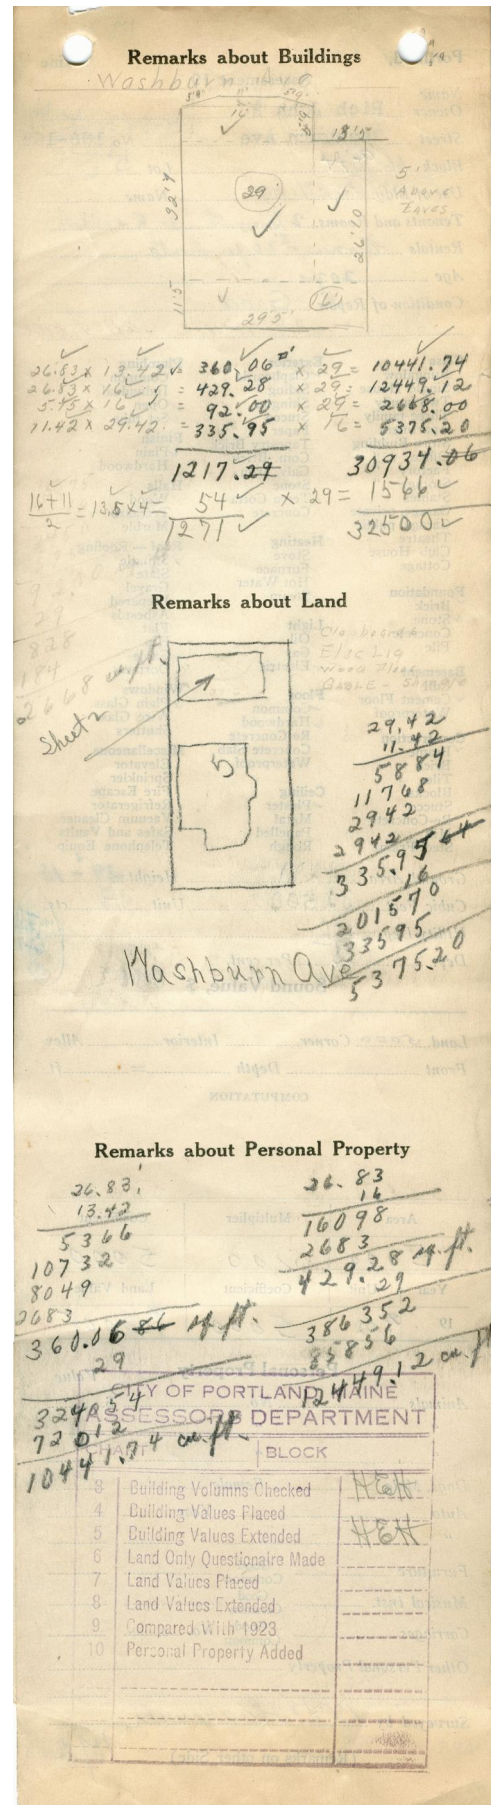 Remarks about Buildings
Washburn Ave
5'9" 11' 5'9"
16'
13'5
32'4
29
5'
Above
Eaves
26'10
11'5
16
29'5
26.83 x 13.42 = 360.06 x 29 = 10441.74
26.83 x 16 = 429.28 x 29 = 12449.12
5.75 x 16 = 92.00 x 29 = 2668.00
11.42 x 29.42 = 335.95 x 16 = 5375.20
1217.29 30934.06
16+11
2 = 13.5 x 4 = 54 x 29 = 1566
1271 32500
92.00
29
828
184
2668 cu. ft.
Remarks about Land
Clapboards
Elec Lig
Wood Floor
Gable
Sheet 2
5
29.42
11.42
5884
11768
2942
2942
335.9564
16
201570
33595
5375.20
Washburn Ave
Remarks about Personal Property
26.83
13.42
5366
10732
8049
2683
360.0686 sq. ft.
29
324054
72012
10441.74 cu. ft.
26.83
16
16098
2683
429.28 sq. ft.
29
386352
85856
12449.12 cu. ft
CITY OF PORTLAND, MAINE
ASSESSORS DEPARTMENT
CHART BLOCK
3 Building Volumns Checked HEH
4 Building Values Placed
5 Building Values Extended HEH
6 Land Only Questionaire Made
7 Land Values Placed
8 Land Values Extended
9 Compared With 1923
10 Personal Property Added